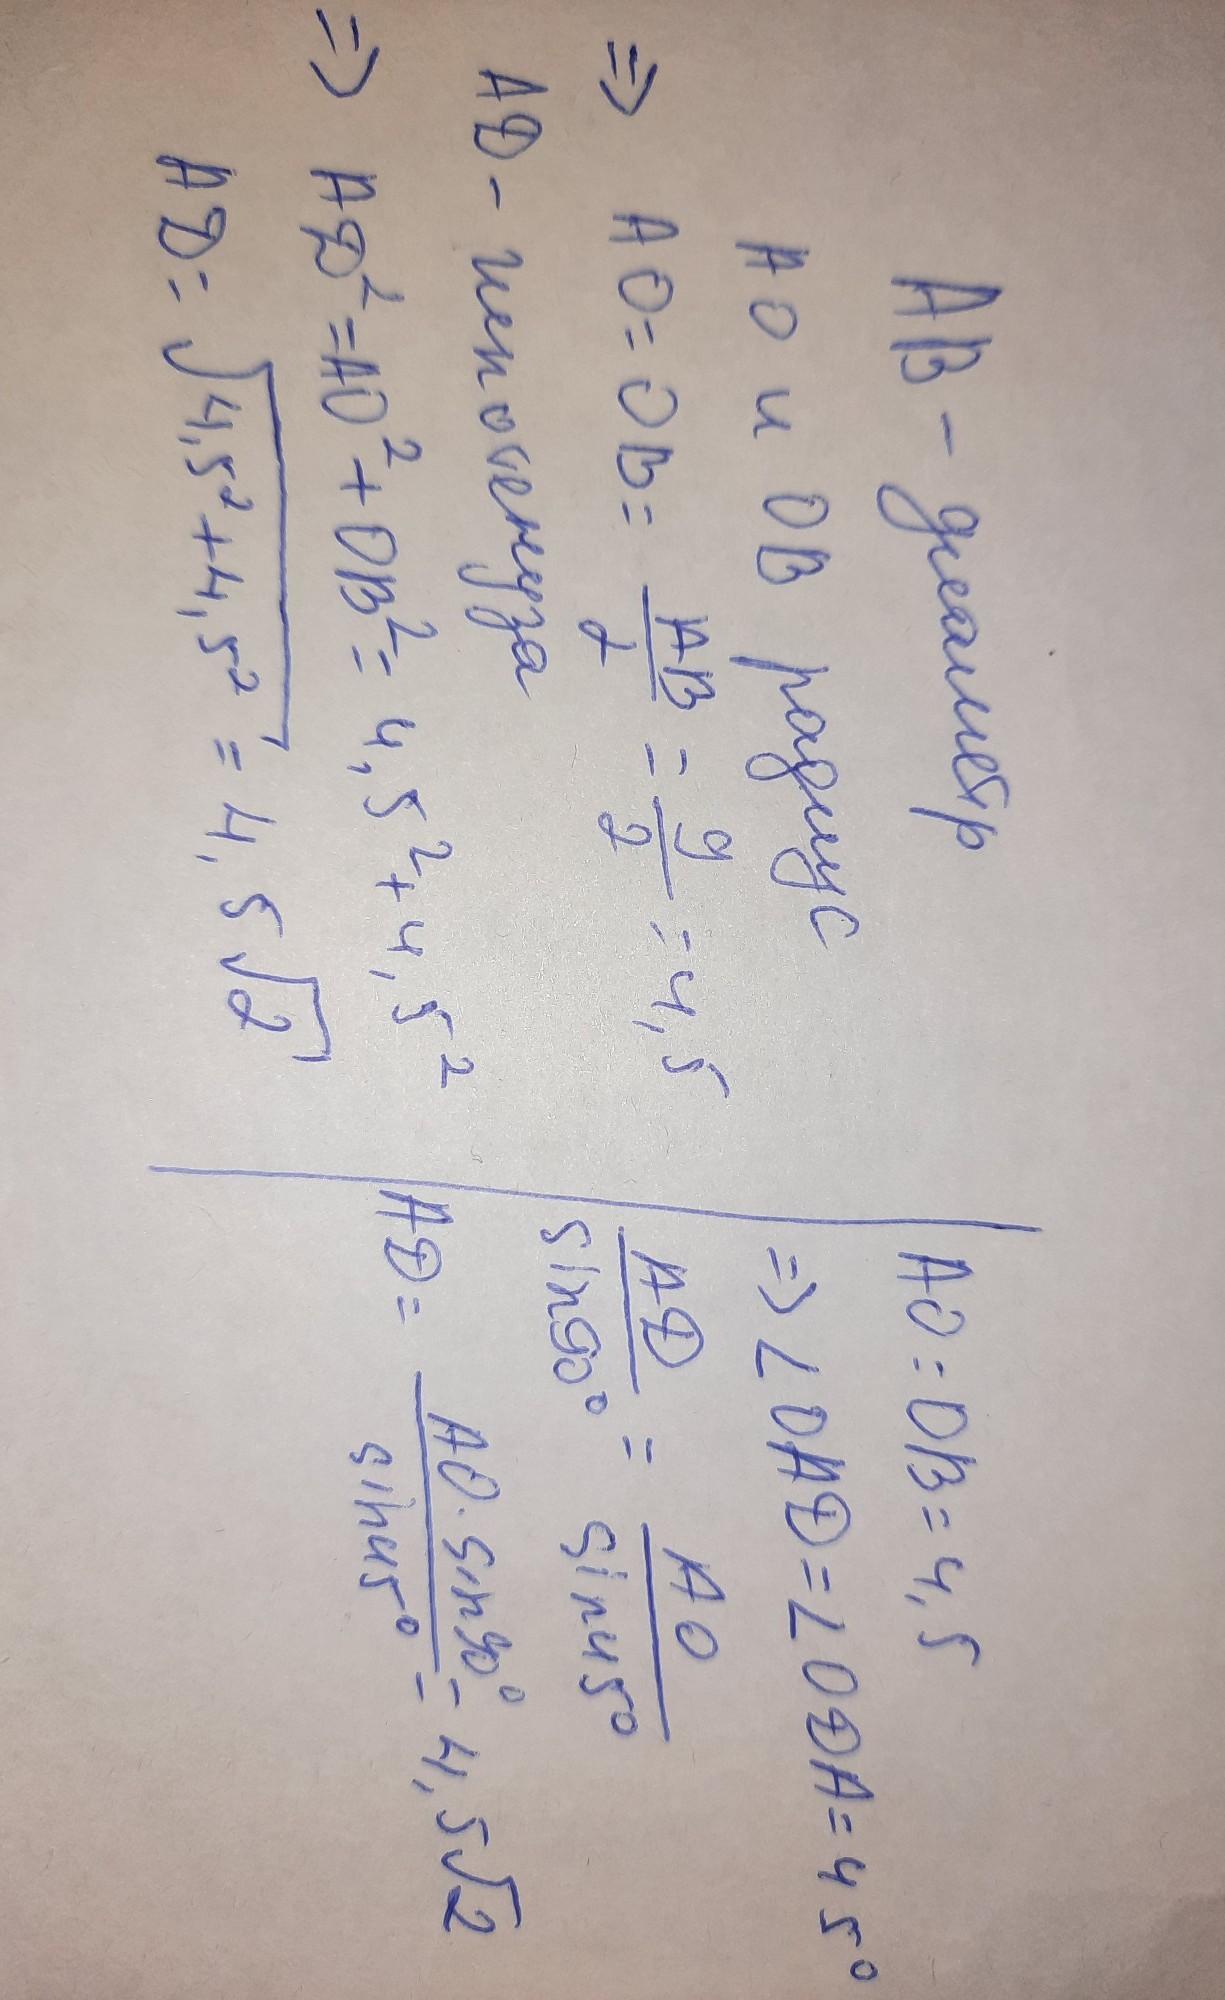 AB - диаметр
AO и OB радиус
=> AO = OB = AB/2 = 9/2 = 4,5
AD - гипотенуза
=> AD² = AO² + OB² = 4,5² + 4,5²
AD = √4,5² + 4,5² = 4,5√2
AO = OB = 4,5
=> ∠OAD = ∠ODA = 45°
AD/sin90° = AO/sin45°
AD = AO · sin90°/sin45° = 4,5√2